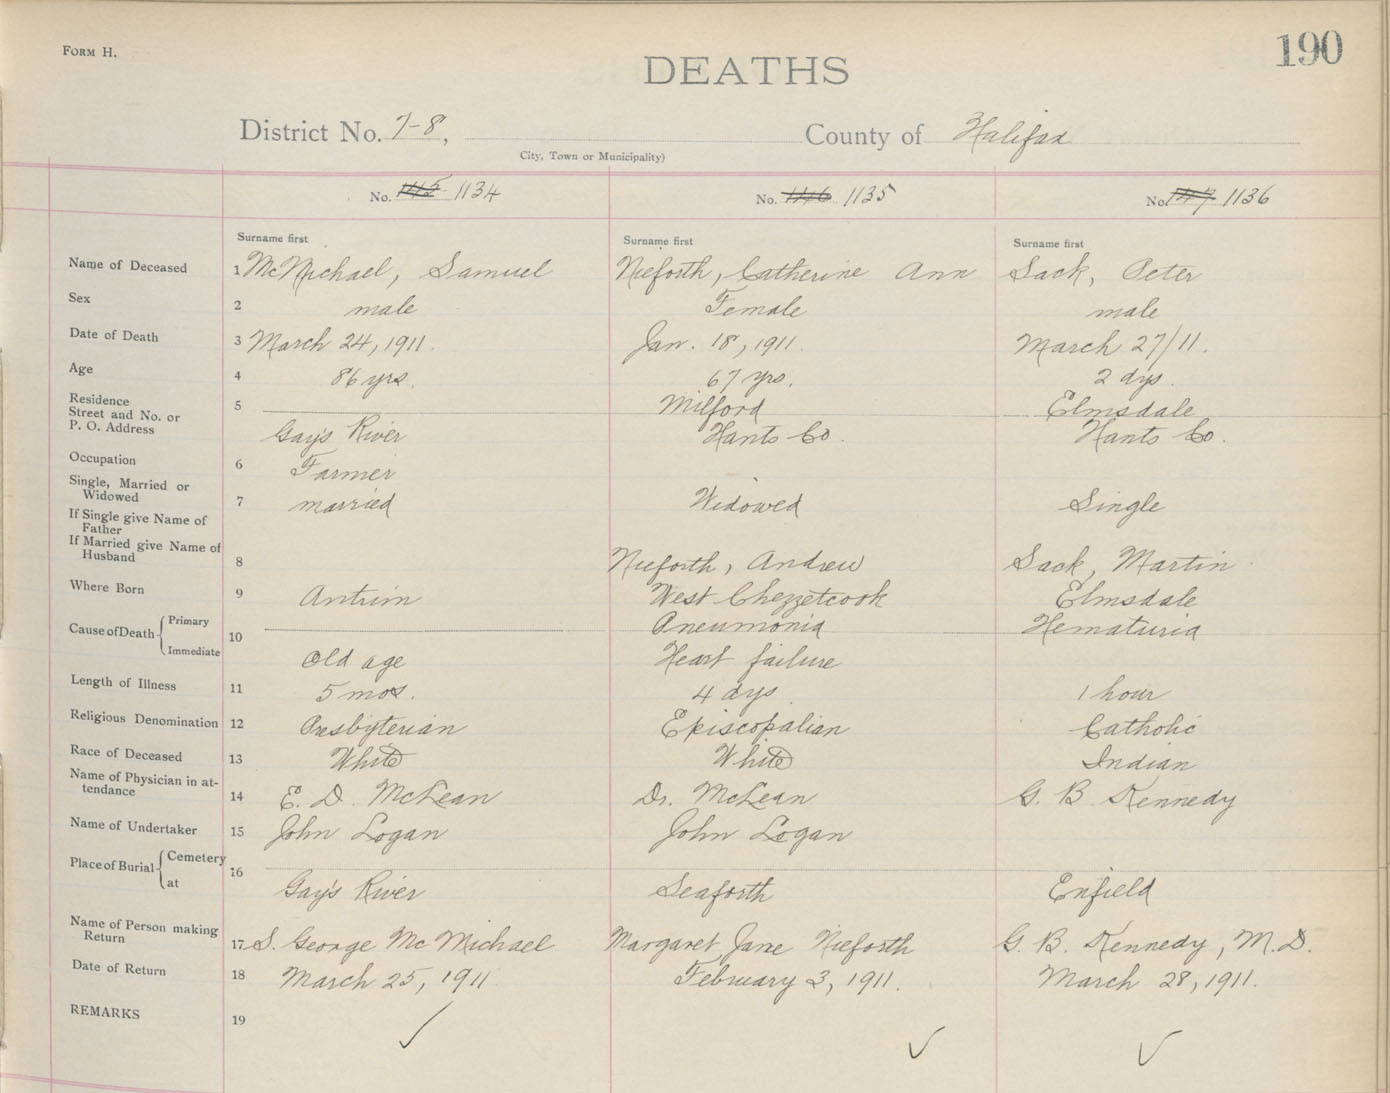 FORM H.
190
DEATHS
District No. 7-8, County of Halifax
City, Town or Municipality)
No. 1134 No. 1135 No. 1136
Surname first Surname first Surname first
Name of Deceased 1 McMichael, Samuel Nieforth, Catherine Ann Sack, Peter
Sex 2 male Female male
Date of Death 3 March 24, 1911. Jan. 18, 1911. March 27/11.
Age 4 86 yrs. 67 yrs. 2 dys.
Residence
Street and No. or 5 Milford Elmsdale
P. O. Address Gay's River Hants Co. Hants Co.
Occupation 6 Farmer
Single, Married or
Widowed 7 married Widowed Single
If Single give Name of
Father
If Married give Name of
Husband 8 Nieforth, Andrew Sack, Martin
Where Born 9 Antrim West Chezzetcook Elmsdale
Cause of Death Primary 10 Pneumonia Hematuria
Immediate Old age Heart failure
Length of Illness 11 5 mos. 4 dys 1 hour
Religious Denomination 12 Presbyterian Episcopalian Catholic
Race of Deceased 13 White White Indian
Name of Physician in at-
tendance 14 E. D. McLean Dr. McLean G. B Kennedy
Name of Undertaker 15 John Logan John Logan
Place of Burial Cemetery 16
at Gay's River Seaforth Enfield
Name of Person making
Return 17 S. George McMichael Margaret Jane Nieforth G. B. Kennedy, M.D.
Date of Return 18 March 25, 1911 February 3, 1911. March 28, 1911.
REMARKS 19